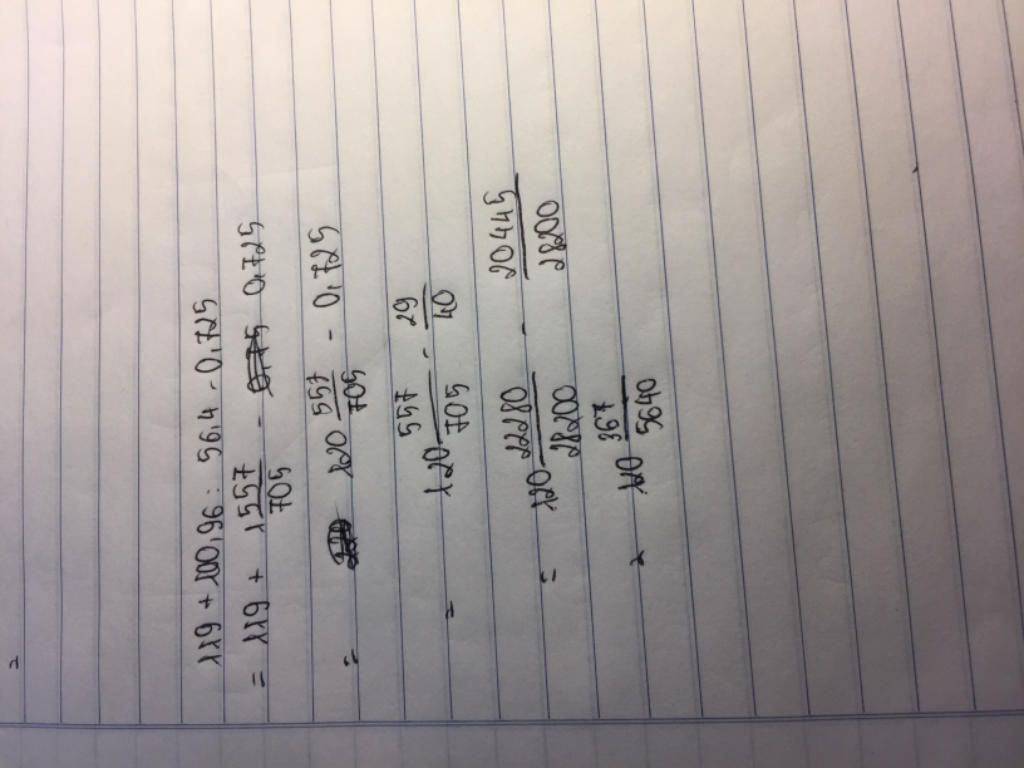 119 + 100,96 : 56,4 - 0,725
= 119 + 1 557/705 - 0,725
= 120 557/705 - 0,725
= 120 557/705 - 29/40
= 120 22280/28200 - 20445/28200
= 120 367/5640